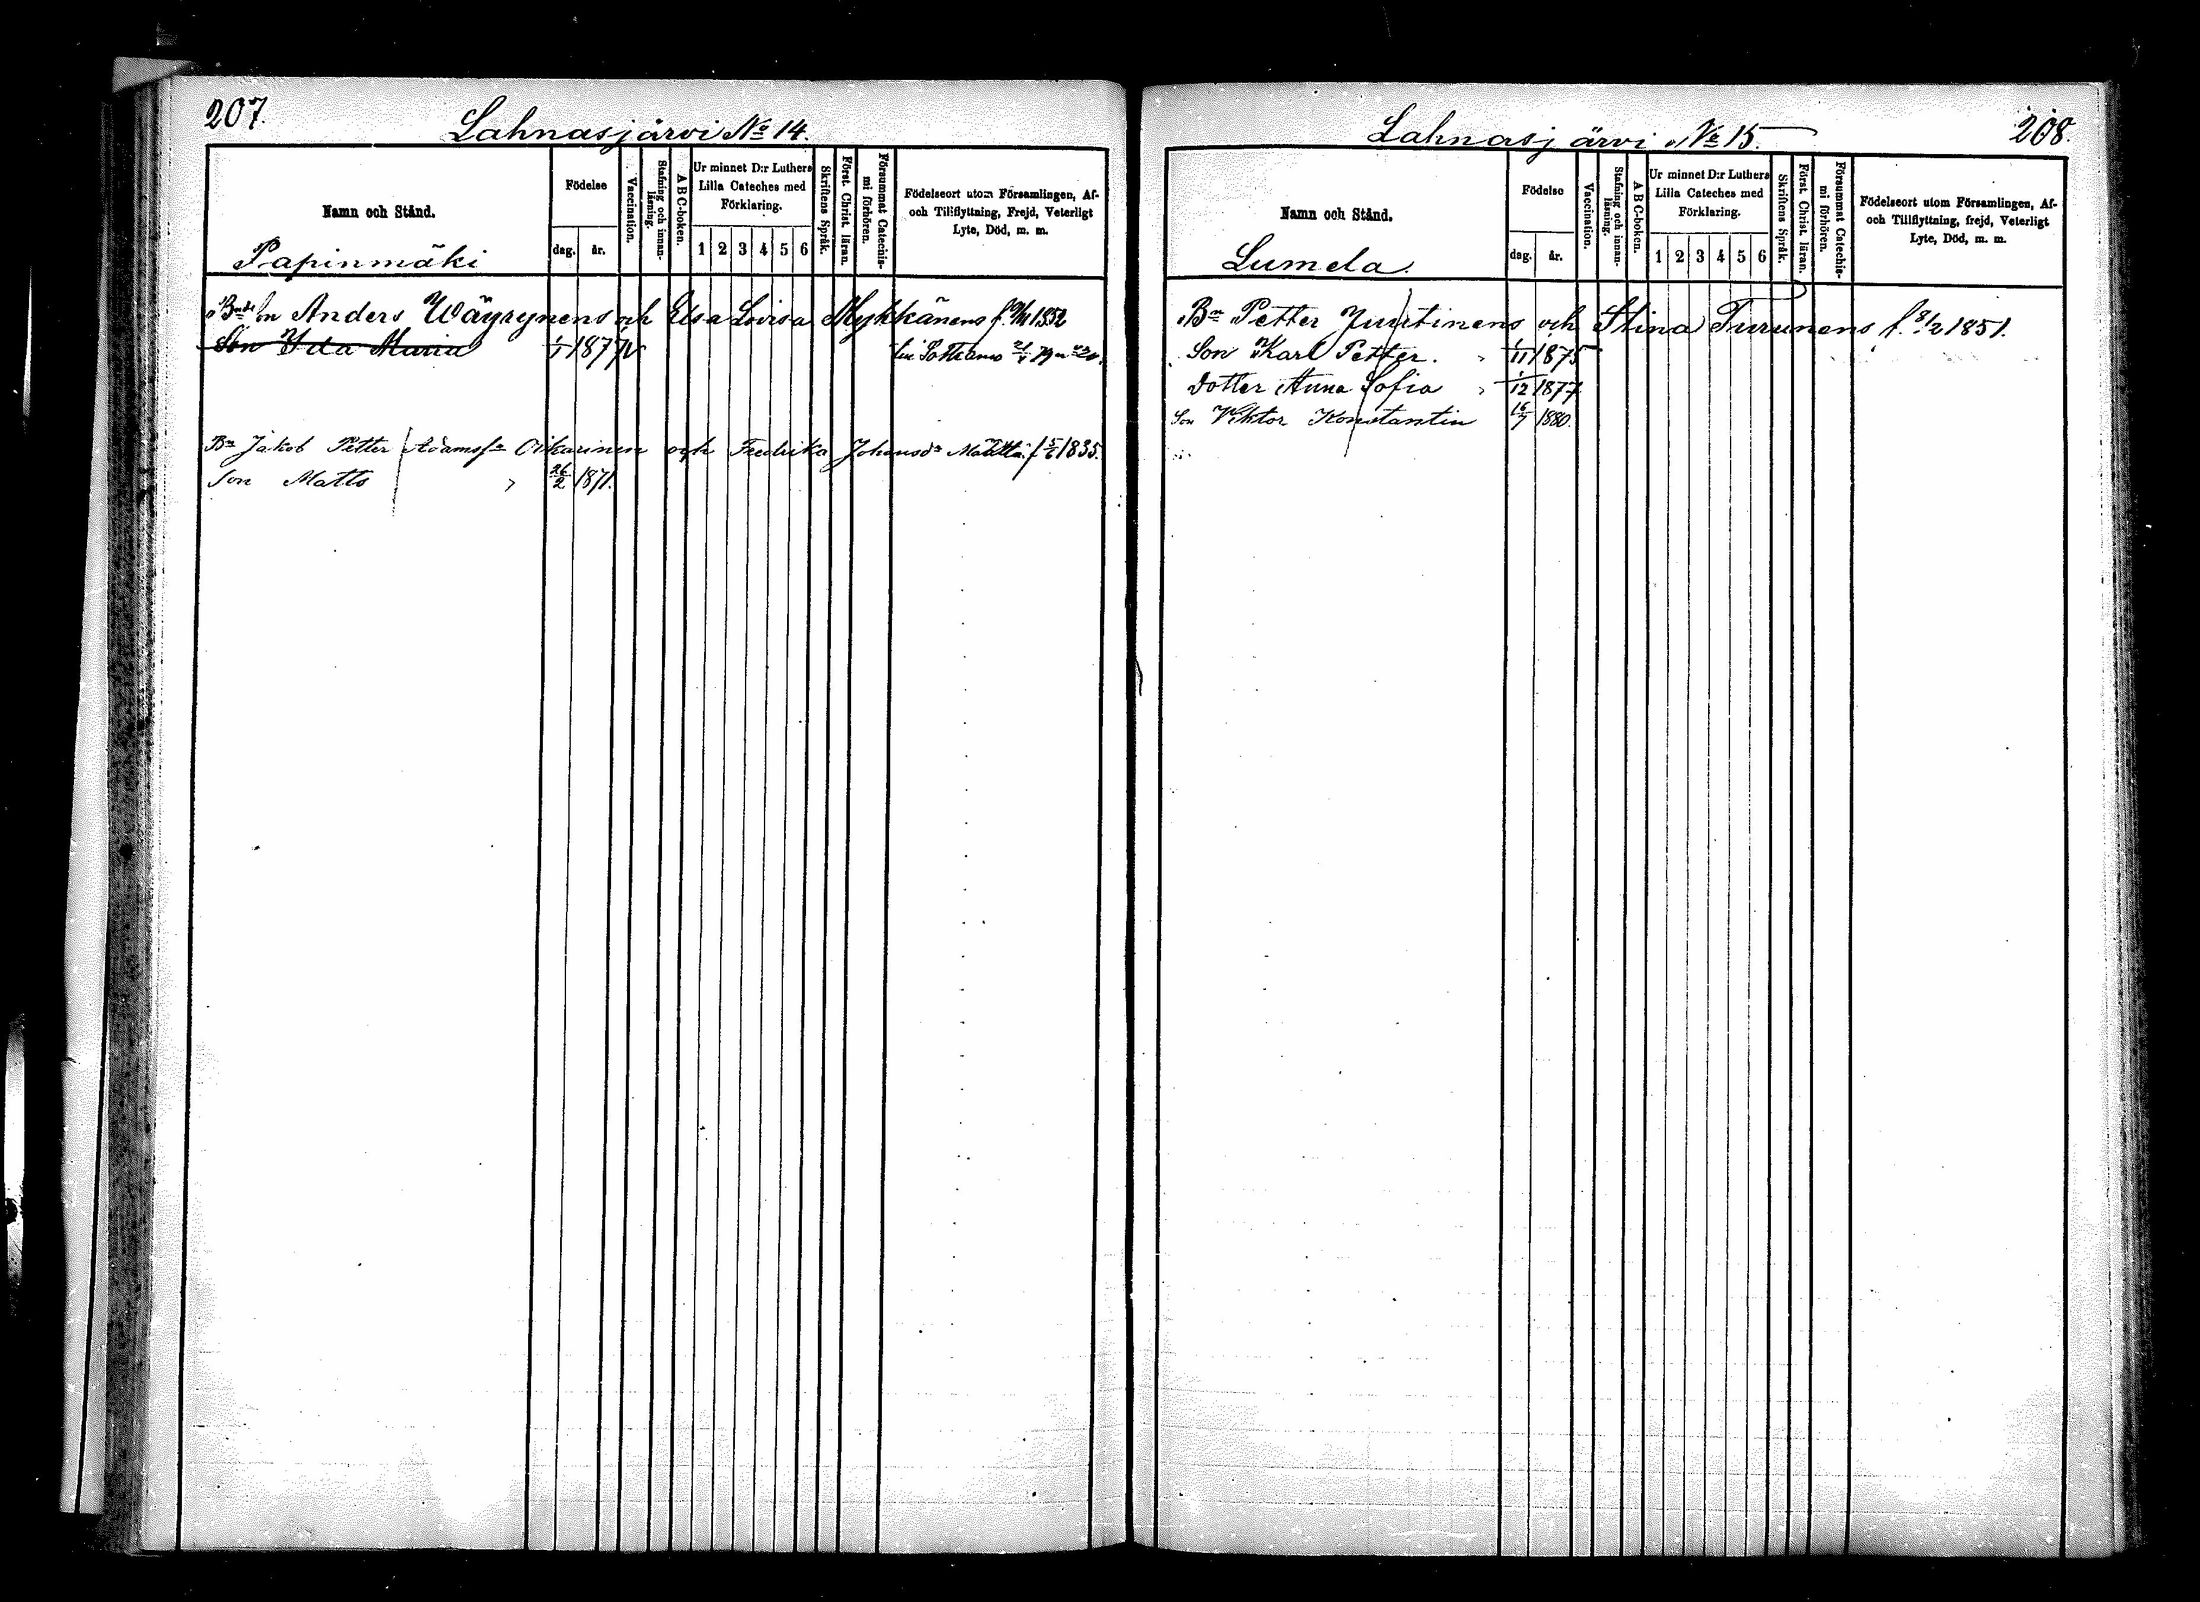 207.
Lahnasjärvi No 14.
Namn och Stånd.
Papinmäki
Födelse
dag.
år.
Vaccination.
Stafning och innan-läsning.
A B C-boken.
Ur minnet D:r Luthers
Lilla Cateches med
Förklaring.
1 2 3 4 5 6
Skriftens Språk.
Först. Christ. läran.
Försummat Catechis-
mi förhören.
Födelseort utom Församlingen, Af-
och Tillflyttning, Frejd, Veterligt
Lyte, Död, m. m.
Anders Wäyrynens och Elsa Lovisa Mykkänens f. 1852
Son Ida Maria 1/1 1877 v
Bn Jakob Petter Adamsson Oikarinen och Fredrika Johansdr Määttä f 5/6 1835.
Son Matts " 26/2 1871.
Lahnasjärvi No 15.
208.
Namn och Stånd.
Lumela.
Födelse
dag.
år.
Vaccination.
Stafning och innan-
läsning.
A B C-boken.
Ur minnet D:r Luthers
Lilla Cateches med
Förklaring.
1 2 3 4 5 6
Skriftens Språk.
Först. Christ. läran.
Försummat Catechis-
mi förhören.
Födelseort utom Församlingen, Af-
och Tillflyttning, frejd, Veterligt
Lyte, Död, m. m.
Bn Petter Juntinens och Stina Turunens f. 8/2 1851.
Son Karl Petter. " 1/11 1875
Dotter Anna Sofia " 1/12 1877
Son Viktor Konstantin 16/7 1880.